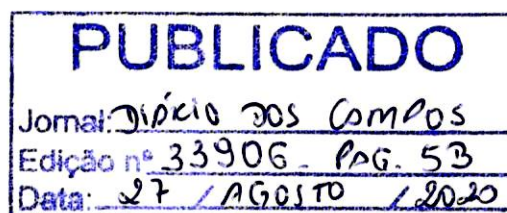 PUBLICADO
Jornal: DIÁRIO DOS CAMPOS
Edição nº 33906 - PÁG. 5B
Data: 27 / AGOSTO / 2020